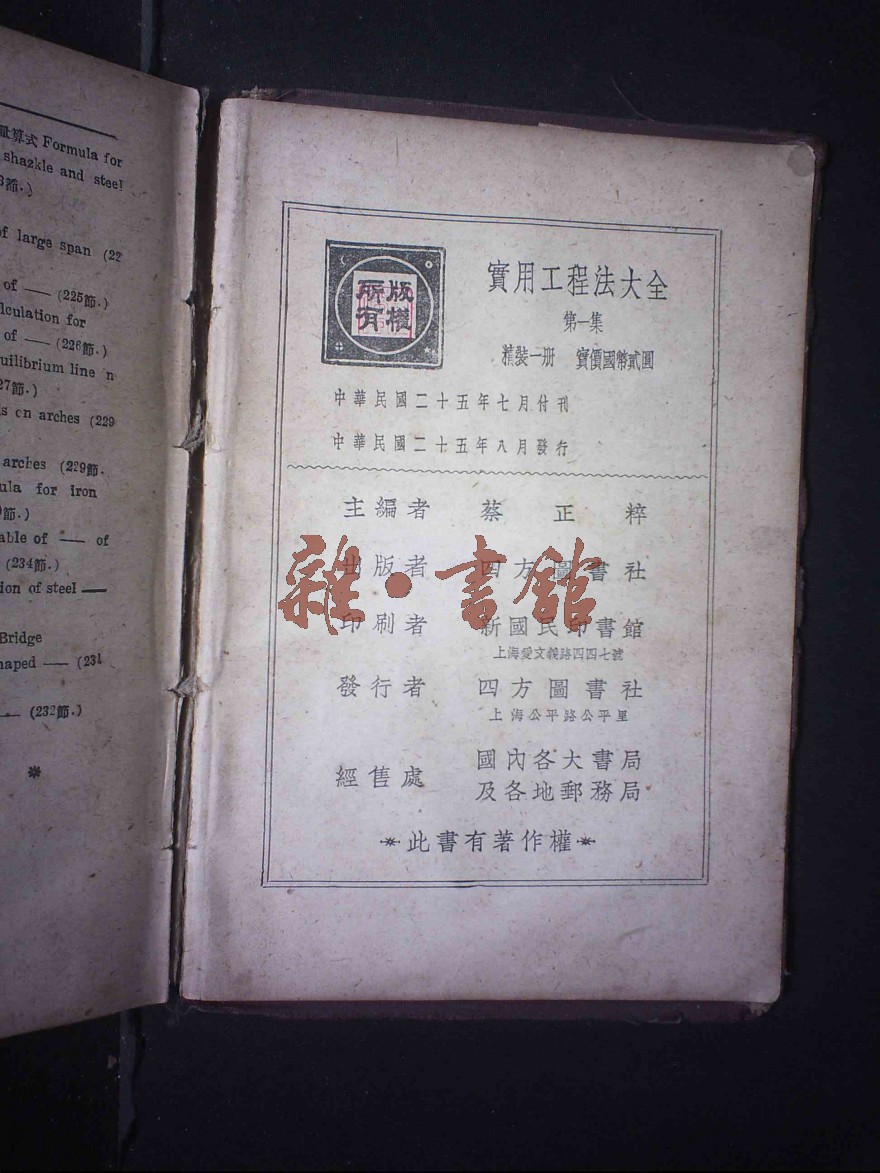 量算式 Formula for
shazkle and steel
節.)
of large span (22
of —— (225節.)
lculation for
of —— (226節.)
uilibrium line n
27節.)
s cn arches (229
arches (229節.
ula for iron
節.)
able of —— of
(234節.)
ion of steel ——
Bridge
haped —— (231
—— (232節.)
版權
所有
實用工程法大全
第一集
精裝一册 實價國幣貳圓
中華民國二十五年七月付刊
中華民國二十五年八月發行
主編者 蔡正粹
出版者 四方圖書社
印刷者 新國民印書館
上海愛文義路四四七號
發行者 四方圖書社
上海公平路公平里
經售處 國內各大書局
及各地郵務局
此書有著作權
雜·書館